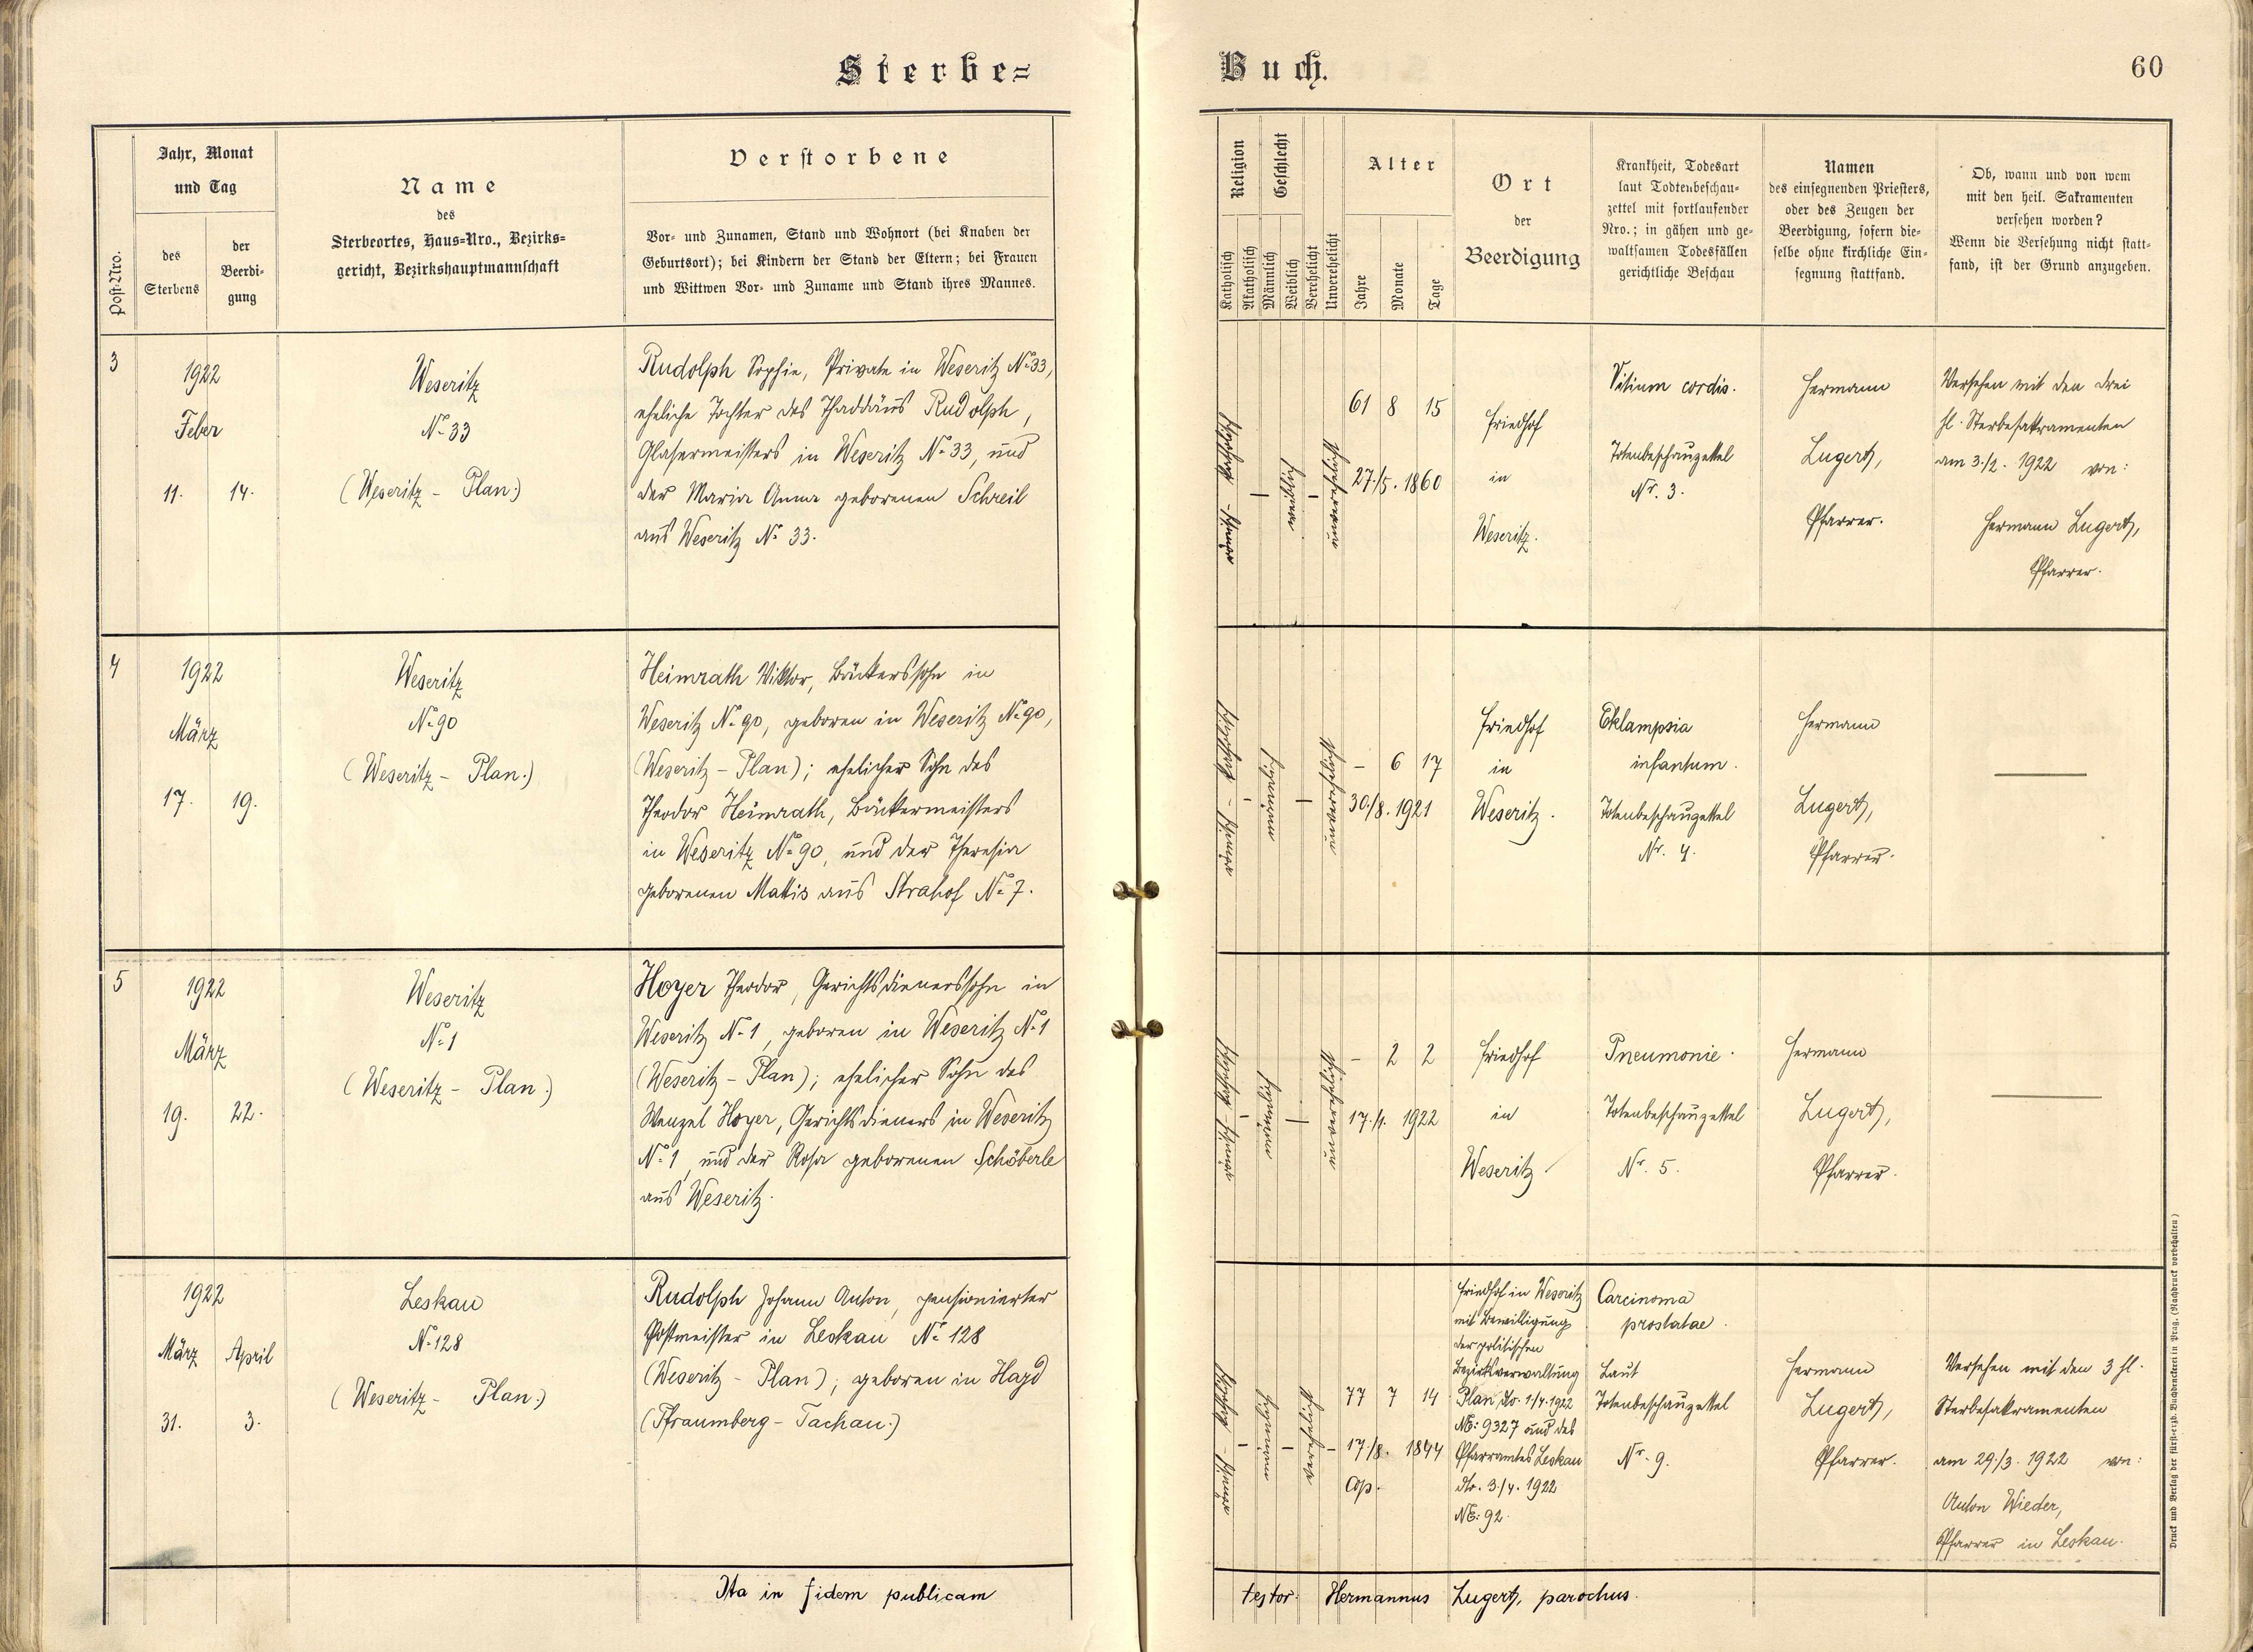 Sterbe=
Buch.
60
Post-Nro.
Jahr, Monat
und Tag
des
Sterbens
der
Beerdi-
gung
Name
des
Sterbeortes, Haus=Nro., Bezirks=
gericht, Bezirkshauptmannschaft
Verstorbene
Vor- und Zunamen, Stand und Wohnort (bei Knaben der
Geburtsort); bei Kindern der Stand der Eltern; bei Frauen
und Wittwen Vor- und Zuname und Stand ihres Mannes.
Religion
Katholisch
Akatholisch
Geschlecht
Männlich
Weiblich
Verehelicht
Unverehelicht
Alter
Jahre
Monate
Tage
Ort
der
Beerdigung
Krankheit, Todesart
laut Todtenbeschau-
zettel mit fortlaufender
Nro.; in gähen und ge-
waltsamen Todesfällen
gerichtliche Beschau
Namen
des einsegnenden Priesters,
oder des Zeugen der
Beerdigung, sofern die-
selbe ohne kirchliche Ein-
segnung stattfand.
Ob, wann und von wem
mit den heil. Sakramenten
versehen worden?
Wenn die Versehung nicht statt-
fand, ist der Grund anzugeben.
3
1922
Feber
11. 14.
Weseritz
№ 33
(Weseritz - Plan.)
Rudolph Sophie, Private in Weseritz № 33,
eheliche Tochter des Thaddäus Rudolph,
Glasermeisters in Weseritz № 33, und
der Maria Anna geborenen Schreil
aus Weseritz № 33.
katholisch
weiblich
unverehelicht
61 8 15
27./5. 1860
Friedhof
in
Weseritz.
Vitium cordis.
Totenbeschauzettel
Nr. 3.
Hermann
Lugert,
Pfarrer.
Versehen mit den drei
hl. Sterbesakramenten
am 3./2. 1922 von:
Hermann Lugert,
Pfarrer.
4
1922
März
17. 19.
Weseritz
№ 90
(Weseritz - Plan.)
Heimrath Viktor, Bäckerssohn in
Weseritz № 90, geboren in Weseritz № 90,
(Weseritz - Plan); ehelicher Sohn des
Theodor Heimrath, Bäckermeisters
in Weseritz № 90, und der Theresia
geborenen Mattis aus Strahof № 7.
katholisch
männlich
unverehelicht
- 6 17
30./8. 1921
Friedhof
in
Weseritz.
Eklampsia
infantum.
Totenbeschauzettel
Nr. 4.
Hermann
Lugert,
Pfarrer.
5
1922
März
19. 22.
Weseritz
№ 1
(Weseritz - Plan.)
Hoyer Theodor, Gerichtsdienerssohn in
Weseritz № 1, geboren in Weseritz № 1
(Weseritz - Plan); ehelicher Sohn des
Wenzel Hoyer, Gerichtsdieners in Weseritz
№ 1, und der Rosa geborenen Schöberle
aus Weseritz.
katholisch
männlich
unverehelicht
- 2 2
17./1. 1922
Friedhof
in
Weseritz
Pneumonie.
Totenbeschauzettel
Nr. 5.
Hermann
Lugert,
Pfarrer.
1922
März April
31. 3.
Leskau
№ 128
(Weseritz - Plan.)
Rudolph Johann Anton, pensionierter
Postmeister in Leskau № 128
(Weseritz - Plan); geboren in Hayd
(Pfraumberg - Tachau.)
katholisch
männlich
verehelicht
77 7 14
17./8. 1844
Cop.
Friedhof in Weseritz
mit Bewilligung
der politischen
Bezirksverwaltung
Plan dto. 1./4. 1922
NE: 9327 und des
Pfarramtes Leskau
dto. 3./4. 1922
NE: 92.
Carcinoma
prostatae.
Laut
Totenbeschauzettel
Nr. 9.
Hermann
Lugert,
Pfarrer.
Versehen mit den 3 hl.
Sterbesakramenten
am 29./3. 1922 von:
Anton Wieder,
Pfarrer in Leskau.
Ita in fidem publicam
testor Hermannus Lugert, parochus.
Druck und Verlag der fürst-erzb. Buchdruckerei in Prag. (Nachdruck vorbehalten)